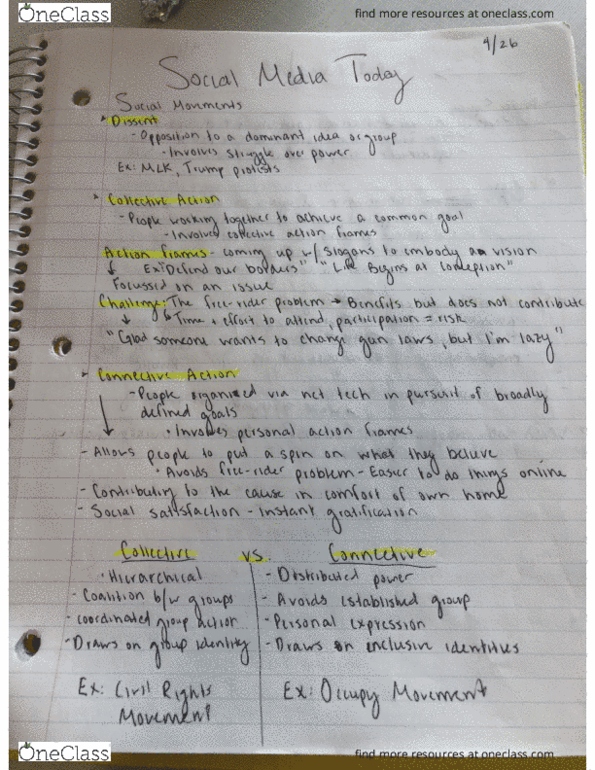 OneClass
find more resources at oneclass.com
4/26
Social Media Today
Social Movements
Dissent
- Opposition to a dominant idea or group
- Involves struggle over power
Ex: MLK, Trump protests
Collective Action
- People working together to achieve a common goal
- Involves collective action frames
Action frames - coming up w/ slogans to embody a vision
↓ Ex: "Defend our borders" "Life Begins at Conception"
Focussed on an issue
Challenge: The free-rider problem → Benefits but does not contribute
↓ ↳ Time + effort to attend, participation = risk
"Glad someone wants to change gun laws, but I'm lazy"
Connective Action
- People organized via net tech in pursuit of broadly
defined goals
• Involves personal action frames
- Allows people to put a spin on what they believe
• Avoids free-rider problem - Easier to do things online
- Contributing to the cause in comfort of own home
- Social satisfaction - Instant gratification
Collective vs. Connective
• Hierarchical - Distributed power
- Coalition b/w groups - Avoids established group
- coordinated group action - Personal expression
- Draws on group identity - Draws on inclusive identities
Ex: Civil Rights Ex: Occupy Movement
Movement
OneClass
find more resources at oneclass.com